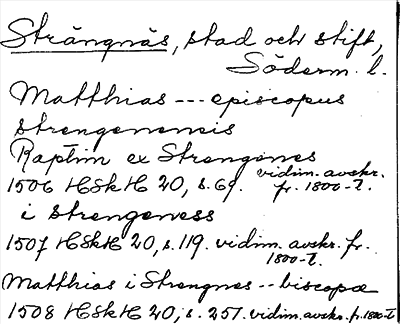 Strängnäs, stad och stift,
Söderm. l.
Matthias --- episcopus
strengenensis
Raptim ex Strengenes
1506 HSkH 20, s. 69. vidim. avskr.
fr. 1800-t.
i strengeness
1507 HSkH 20, s. 119. vidim. avskr. fr.
1800-t.
Matthias i Strengnes -- biscopa
1508 HSkH 20, s. 257. vidim. avskr. fr. 1800-t